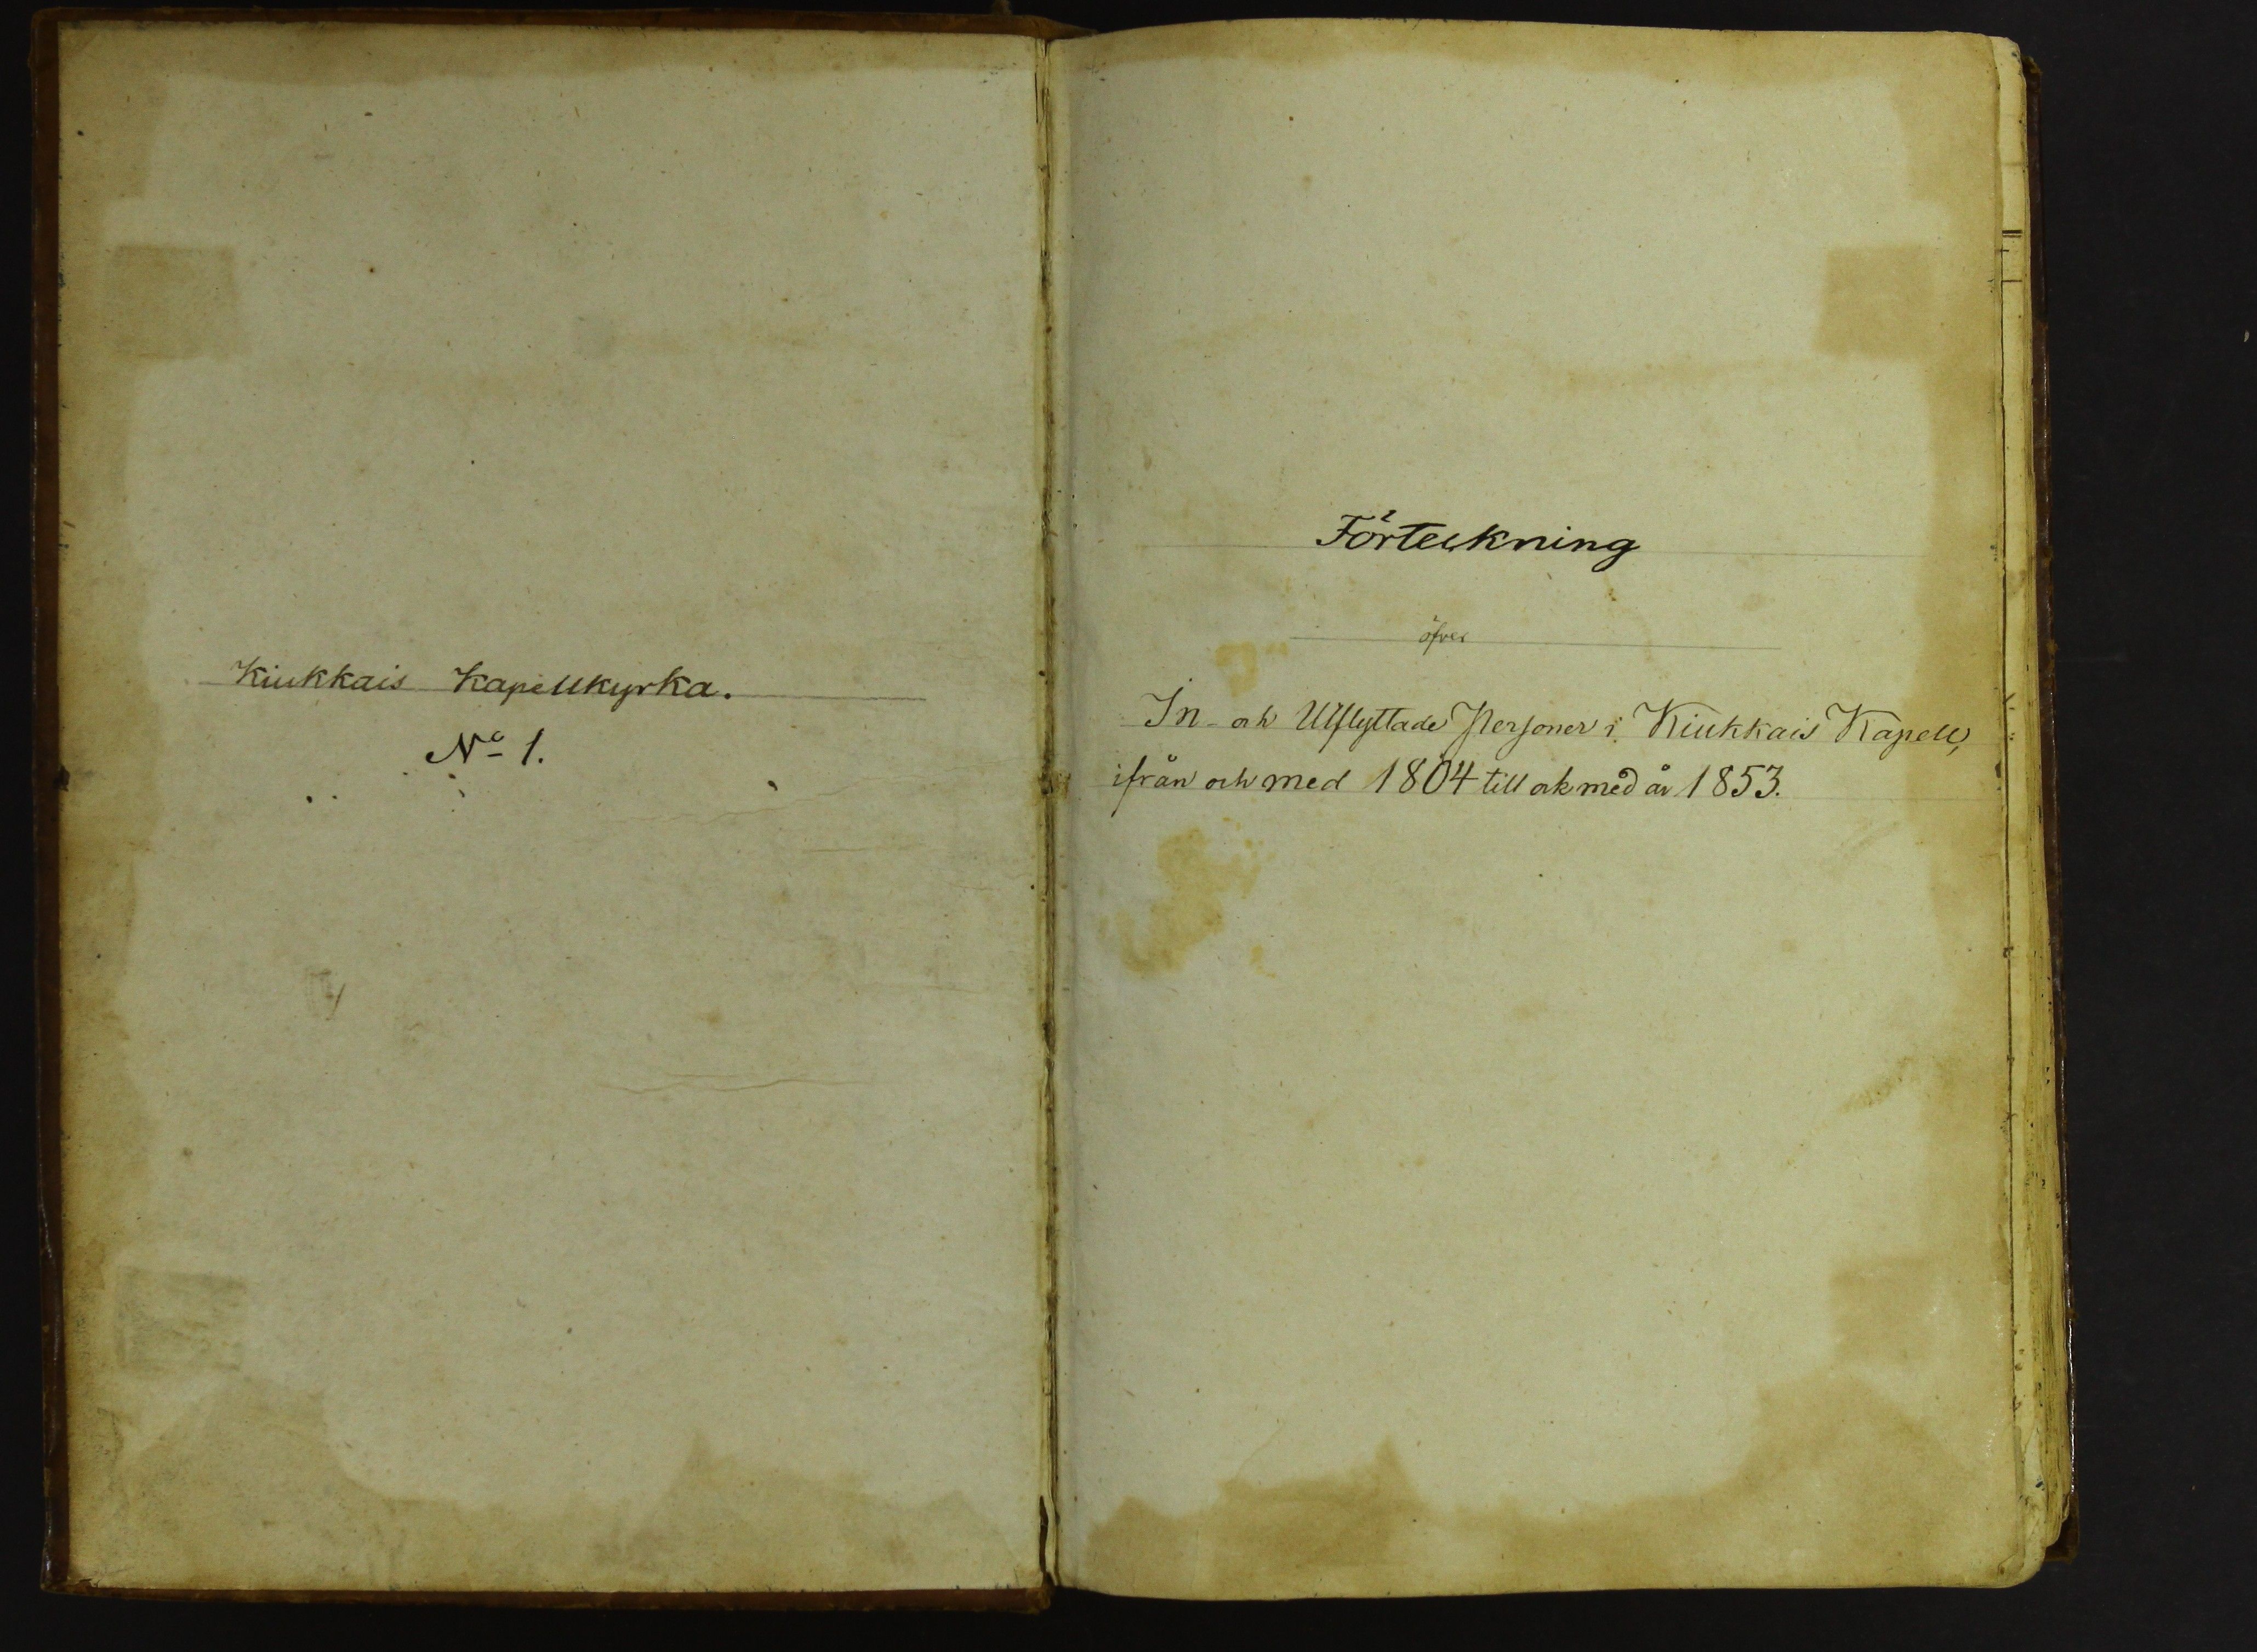 Kiukkais Kapellkyrka.
No 1.
Förteckning
öfver
In- och Utflyttade Personer i Kiukkais Kapell,
ifrån och med 1804 till och med år 1853.